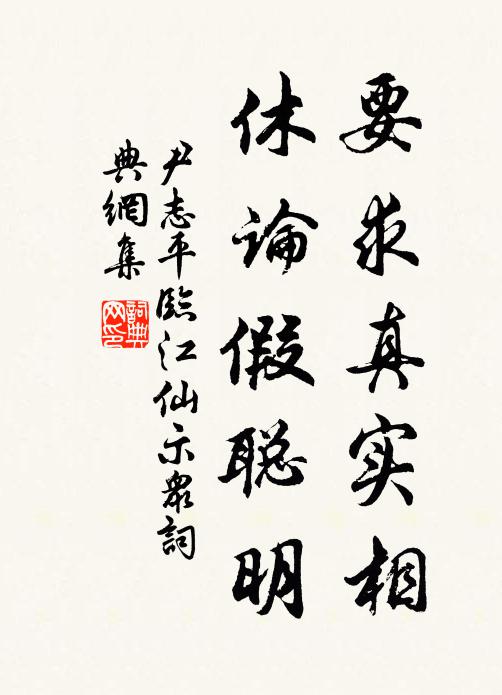 要求真实相
休論假聪明
尹志平臨江仙示衆詞
典網集
詞典网印